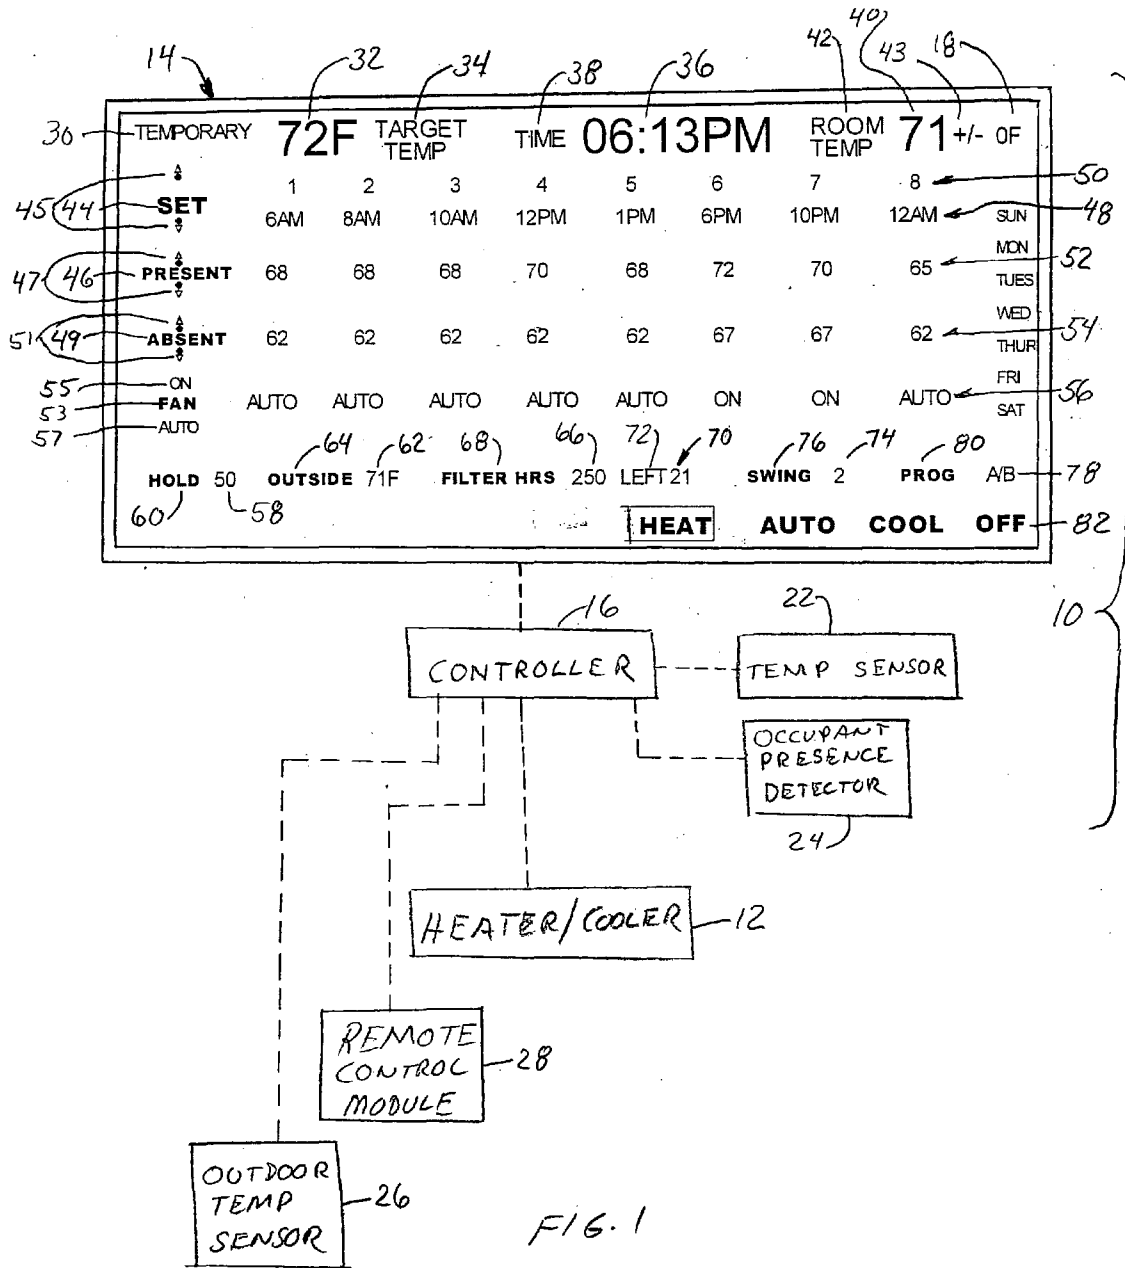 14 32 34 38 36 42 40 43 18
30 TEMPORARY 72F TARGET TEMP TIME 06:13PM ROOM TEMP 71 +/- 0F
1 2 3 4 5 6 7 8 50
45 44 SET 6AM 8AM 10AM 12PM 1PM 6PM 10PM 12AM SUN 48
MON
47 46 PRESENT 68 68 68 70 68 72 70 65 52
TUES
WED
51 49 ABSENT 62 62 62 62 62 67 67 62 54
THUR
55 ON FRI
53 FAN AUTO AUTO AUTO AUTO AUTO ON ON AUTO 56
SAT
57 AUTO
64 62 68 66 72 70 76 74 80
HOLD 50 OUTSIDE 71F FILTER HRS 250 LEFT 21 SWING 2 PROG A/B 78
60 58
HEAT AUTO COOL OFF 82
10
16
CONTROLLER
22
TEMP SENSOR
OCCUPANT
PRESENCE
DETECTOR
24
HEATER/COOLER 12
REMOTE
CONTROL 28
MODULE
OUTDOOR
TEMP 26
SENSOR
FIG. 1